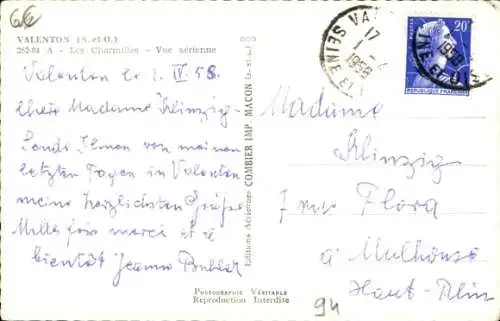 66
VALENTON (S.-et-O.)
252-84 A - Les Charmilles - Vue aérienne
Valenton le 1. IV. 58.
Chère Madame Klinzig
Sende Ihnen von meinen
letzten Tagen in Valenton
meine herzlichsten Grüße
Mille fois merci et à
bientôt Jeanne
PHOTOGRAPHIE VÉRITABLE
Reproduction Interdite
Editions Aériennes COMBIER IMP. MACON
17
1 - 4
1958
SEINE ET
20F
POSTES
REPUBLIQUE FRANÇAISE
Madame
Klinzig
7 rue Flora
à Mulhouse
Haut-Rhin
94